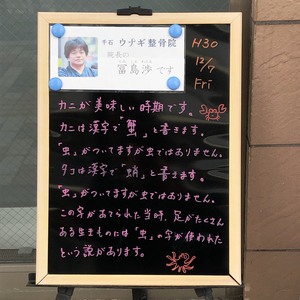 ウナギ整骨院
院長の
冨島渉です
H30
12/7
Fri
カニが美味しい時期です。
カニは漢字で「蟹」と書きます。
「虫」がついてますが虫ではありません。
タコは漢字で「蛸」と書きます。
「虫」がついてますが虫ではありません。
この字があてられた当時、足がたくさん
ある生きものには「虫」の字が使われた
という説があります。